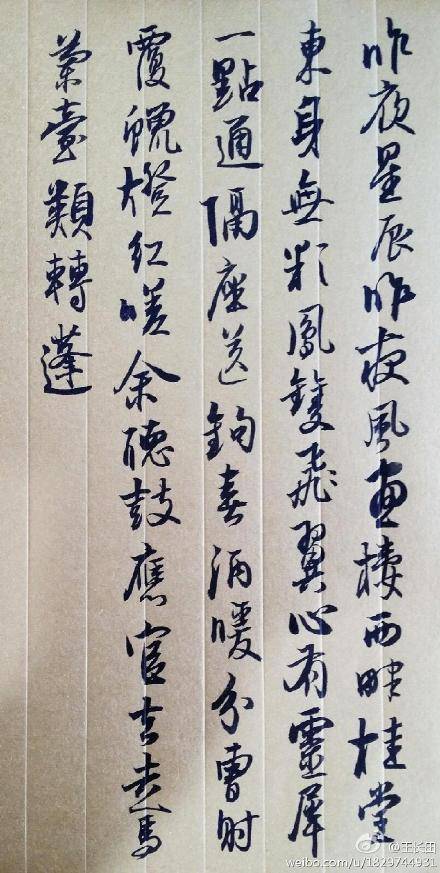 昨夜星辰昨夜風畫樓西畔桂堂
東身無彩鳳雙飛翼心有靈犀
一點通隔座送鉤春酒暖分曹射
覆蠟燈紅嗟余聽鼓應官去走馬
蘭臺類轉蓬
@王长田
weibo.com/u/1829744931